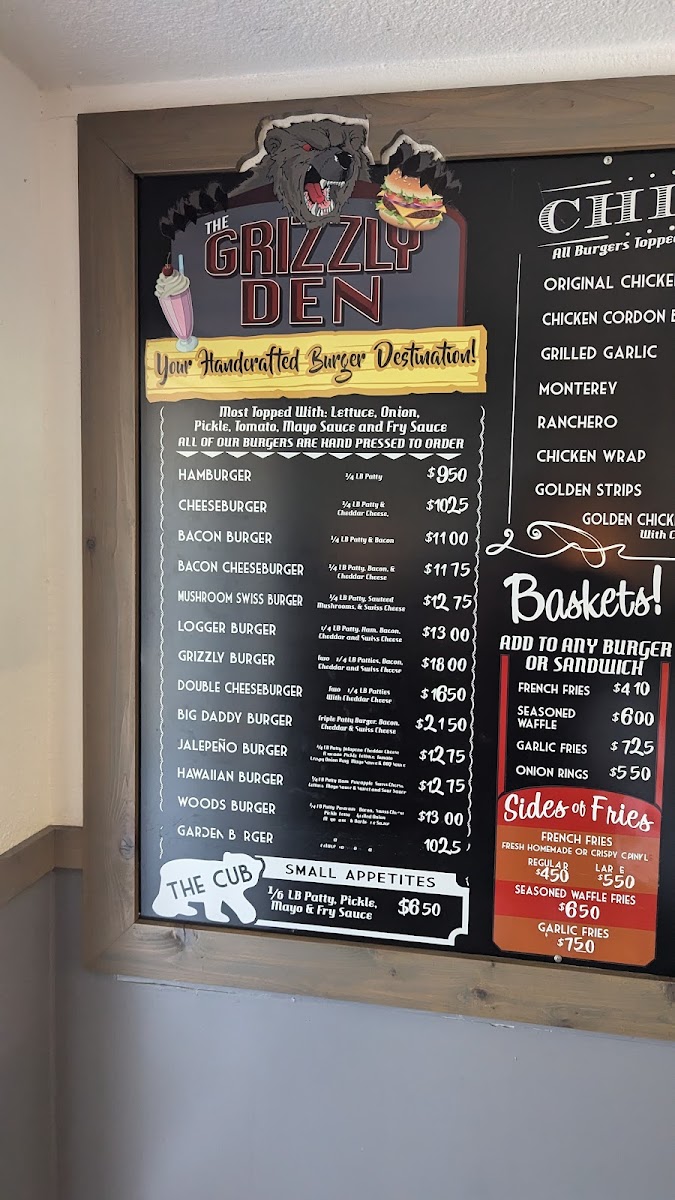 THE
GRIZZLY
DEN
Your Handcrafted Burger Destination!
Most Topped With: Lettuce, Onion,
Pickle, Tomato, Mayo Sauce and Fry Sauce
ALL OF OUR BURGERS ARE HAND PRESSED TO ORDER
HAMBURGER 1/4 LB Patty $950
CHEESEBURGER 1/4 LB Patty & $1025
Cheddar Cheese,
BACON BURGER 1/4 LB Patty & Bacon $11 00
BACON CHEESEBURGER 1/4 LB Patty, Bacon, & $11 75
Cheddar Cheese
MUSHROOM SWISS BURGER 1/4 LB Patty, Sauteed $12 75
Mushrooms, & Swiss Cheese
LOGGER BURGER 1/4 LB Patty, Ham, Bacon, $13 00
Cheddar and Swiss Cheese
GRIZZLY BURGER Two 1/4 LB Patties, Bacon, $18 00
Cheddar and Swiss Cheese
DOUBLE CHEESEBURGER Two 1/4 LB Patties $1650
With Cheddar Cheese
BIG DADDY BURGER Triple Patty Burger, Bacon, $21 50
Cheddar & Swiss Cheese
JALEPEÑO BURGER 1/4 LB Patty Jalapeno Cheddar Cheese $12 75
HAWAIIAN BURGER 1/4 LB Patty Ham Pineapple Swiss Cheese $12 75
WOODS BURGER 1/4 LB Patty $13 00
GARDEN B RGER 1025
THE CUB
SMALL APPETITES
1/6 LB Patty, Pickle,
Mayo & Fry Sauce $6 50
CHI
All Burgers Toppe
ORIGINAL CHICKE
CHICKEN CORDON B
GRILLED GARLIC
MONTEREY
RANCHERO
CHICKEN WRAP
GOLDEN STRIPS
GOLDEN CHICK
With C
Baskets!
ADD TO ANY BURGER
OR SANDWICH
FRENCH FRIES $4 10
SEASONED
WAFFLE $600
GARLIC FRIES $ 725
ONION RINGS $5 50
Sides of Fries
FRENCH FRIES
FRESH HOMEMADE OR CRISPY C RNYL
REGULAR LAR E
$450 $550
SEASONED WAFFLE FRIES
$650
GARLIC FRIES
$750